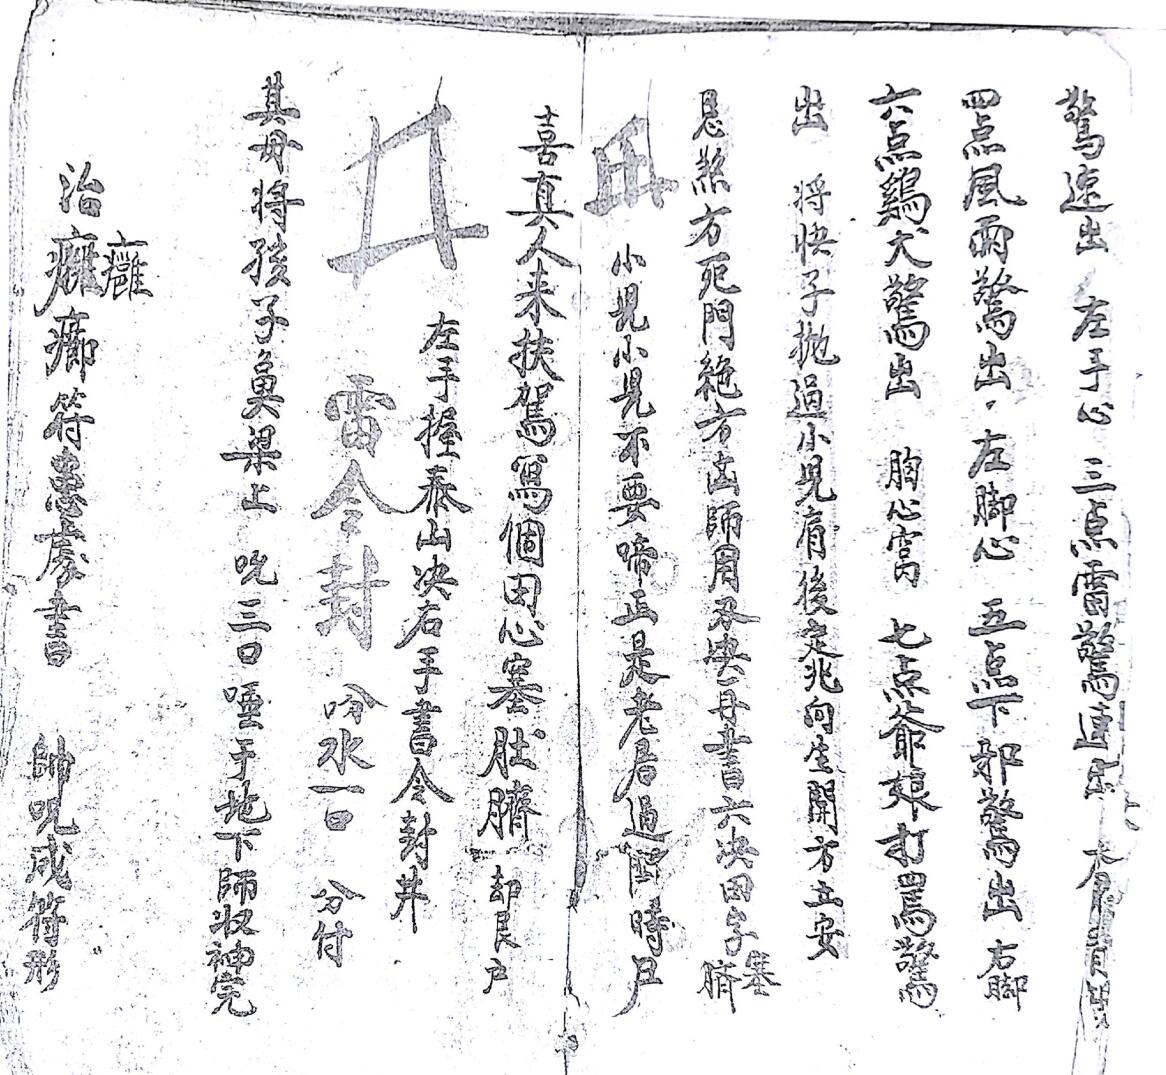 驚速出 左手心 三点雷驚速出
四点風雨驚出 左脚心 五点下邪驚出 右脚
六点鷄犬驚出 胸心窩 七点爺娘打罵驚
出 将快子抛過小児肩後定兆向生開方立安
忌煞方死門絶方凶師用丑决毋書六决田字塞臍
小児小児不要啼正是老君過時
喜真人来扶駕寫個田心塞肚臍 却艮户
井 左手握泰山决右手書令封井
雷令封 吟水一口 分付
其毋将孩子鼻梁上 吮三口唾于地下師收神完
治癱癤符患處書 帥呪成符形